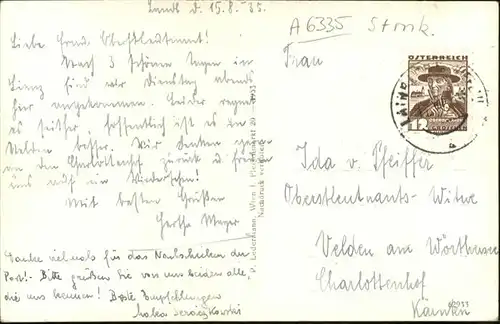 Landl d. 15.8.35.
Liebe Frau Oberstleutnant!
Nach 3 schönen Tagen in
Lienz sind wir Dienstag abends
hier angekommen. Leider regnet
es seither, hoffentlich ist es in
Velden besser. Wir denken gerne
an den Charlottenhof zurück u. freuen
uns auf ein Wiedersehen!
Mit besten Grüßen
Gertha Mayer
Danke vielmals für das Nachschicken der
Post! - Bitte grüßen Sie von uns beiden alle,
die uns kennen! Beste Empfehlungen
P. Ledermann, Wien I, Fleischmarkt 20
Nachdruck verboten
A6335 Stmk.
ÖSTERREICH
12
Frau
Ida v. Pfeiffer
Oberstleutnants-Witwe
Velden am Wörthersee
Charlottenhof
Kärnten